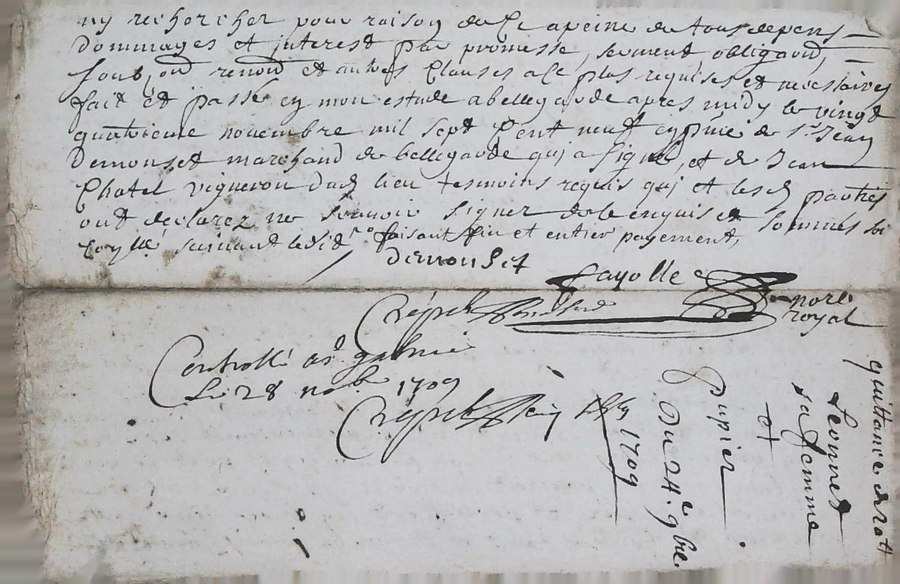 ny rechercher pour raison de ce a peine de tous despens
dommages et interest par promesse, serment obligaon,
renon et autres clauses a ce plus requises et necessaires
fait et passe en mon estude a bellegarde apres midy le vingt
quatrieme novembre mil sept cent neuf en pnce de Sr Jean
Demonset marchand de bellegarde qui a signé, et de Jean
Chatel vigneron dud lieu tesmoins requis qui et lesd parties
ont declarez ne scavoir signer de ce enquis et sommes
faisant fin et entier payement,
demonset
Fayolle
nore
royal
Crépet
Controllé a St galmie
le 28 nobre 1709
Crépet
1709
quittance
Leonnet
sa femme
et
Dupier
Du 24e 9bre
1709